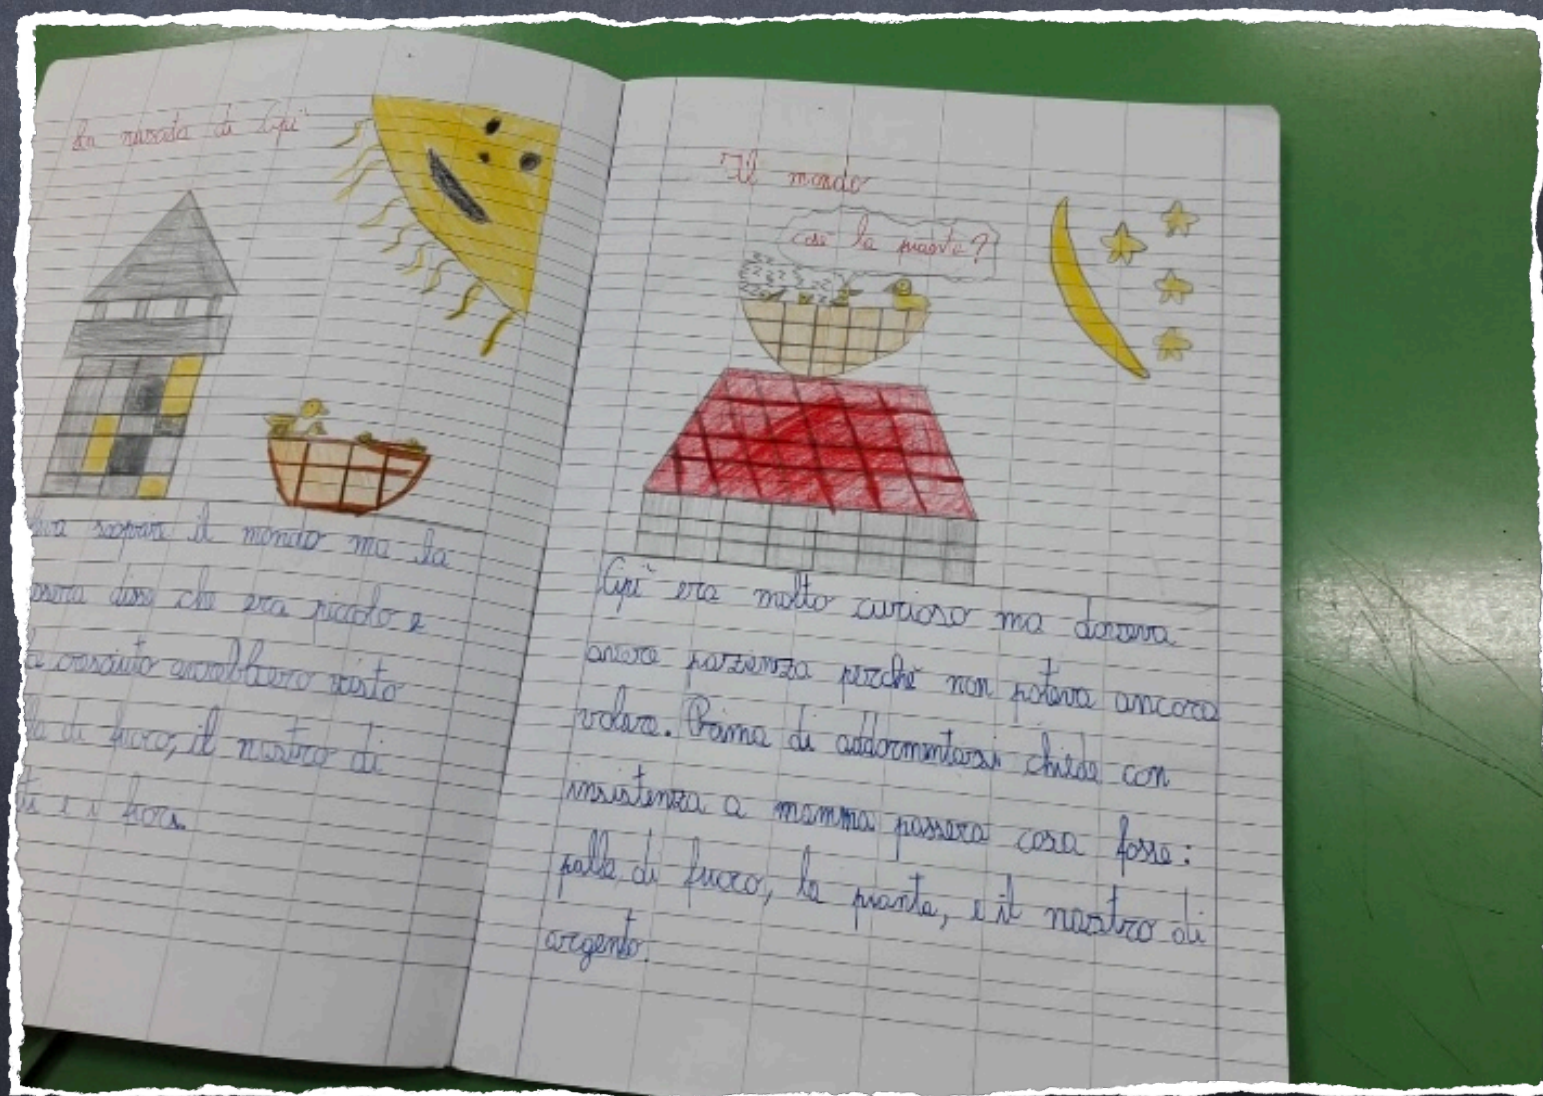 La nascita di Cipì
scoprire il mondo ma la
disse che era piccolo e
cresciuto avrebbero visto
di fuoco, il nastro di
e i fiori.
Il mondo
cose la pianta?
Cipì era molto curioso ma doveva
avere pazienza perché non poteva ancora
volare. Prima di addormentarsi chiede con
insistenza a mamma passera cosa fosse:
palla di fuoco, la pianta, e il nastro di
argento.